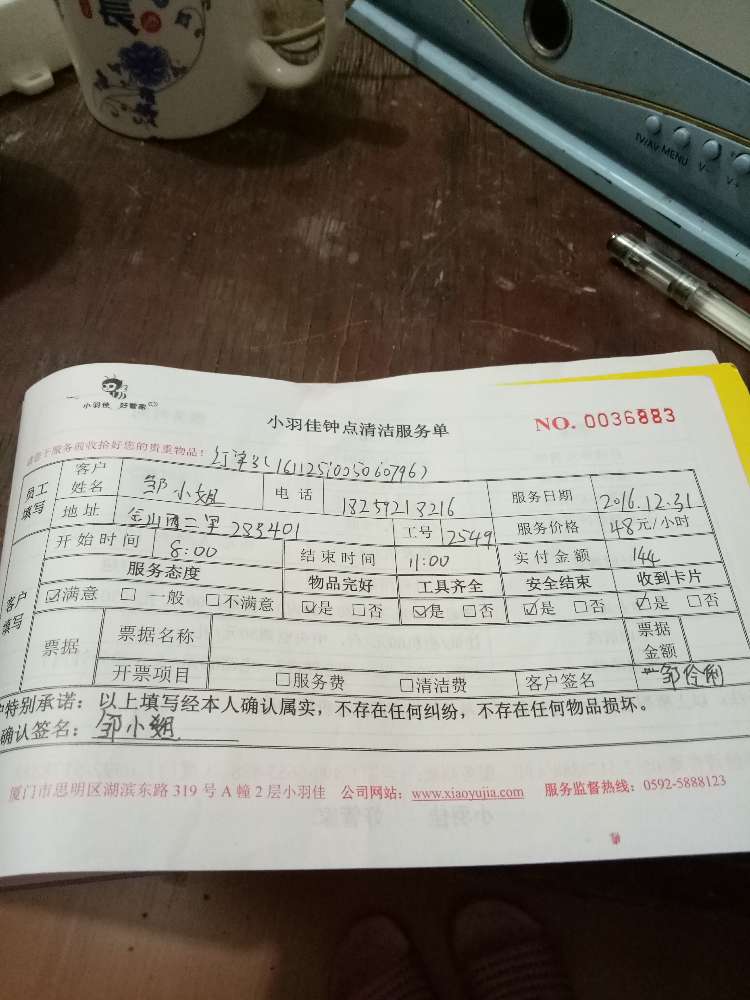 長
TV/AV MENU V- V+
小羽佳 好管家
小羽佳钟点清洁服务单
NO. 0036883
请您于服务前收拾好您的贵重物品!
员工填写 客户姓名 邹小姐 电话 18259213216 服务日期 2016.12.31
地址 金山西二里 283401 工号 2549 服务价格 48元/小时
客户填写 开始时间 8:00 结束时间 11:00 实付金额 144
服务态度 物品完好 工具齐全 安全结束 收到卡片
☑满意 □一般 □不满意 ☑是 □否 ☑是 □否 ☑是 □否 ☑是 □否
票据 票据名称 票据金额
开票项目 □服务费 □清洁费 客户签名 邹伶俐
户特别承诺:以上填写经本人确认属实,不存在任何纠纷,不存在任何物品损坏。
确认签名:邹小姐
厦门市思明区湖滨东路 319 号 A 幢 2 层小羽佳 公司网站:www.xiaoyujia.com 服务监督热线:0592-5888123